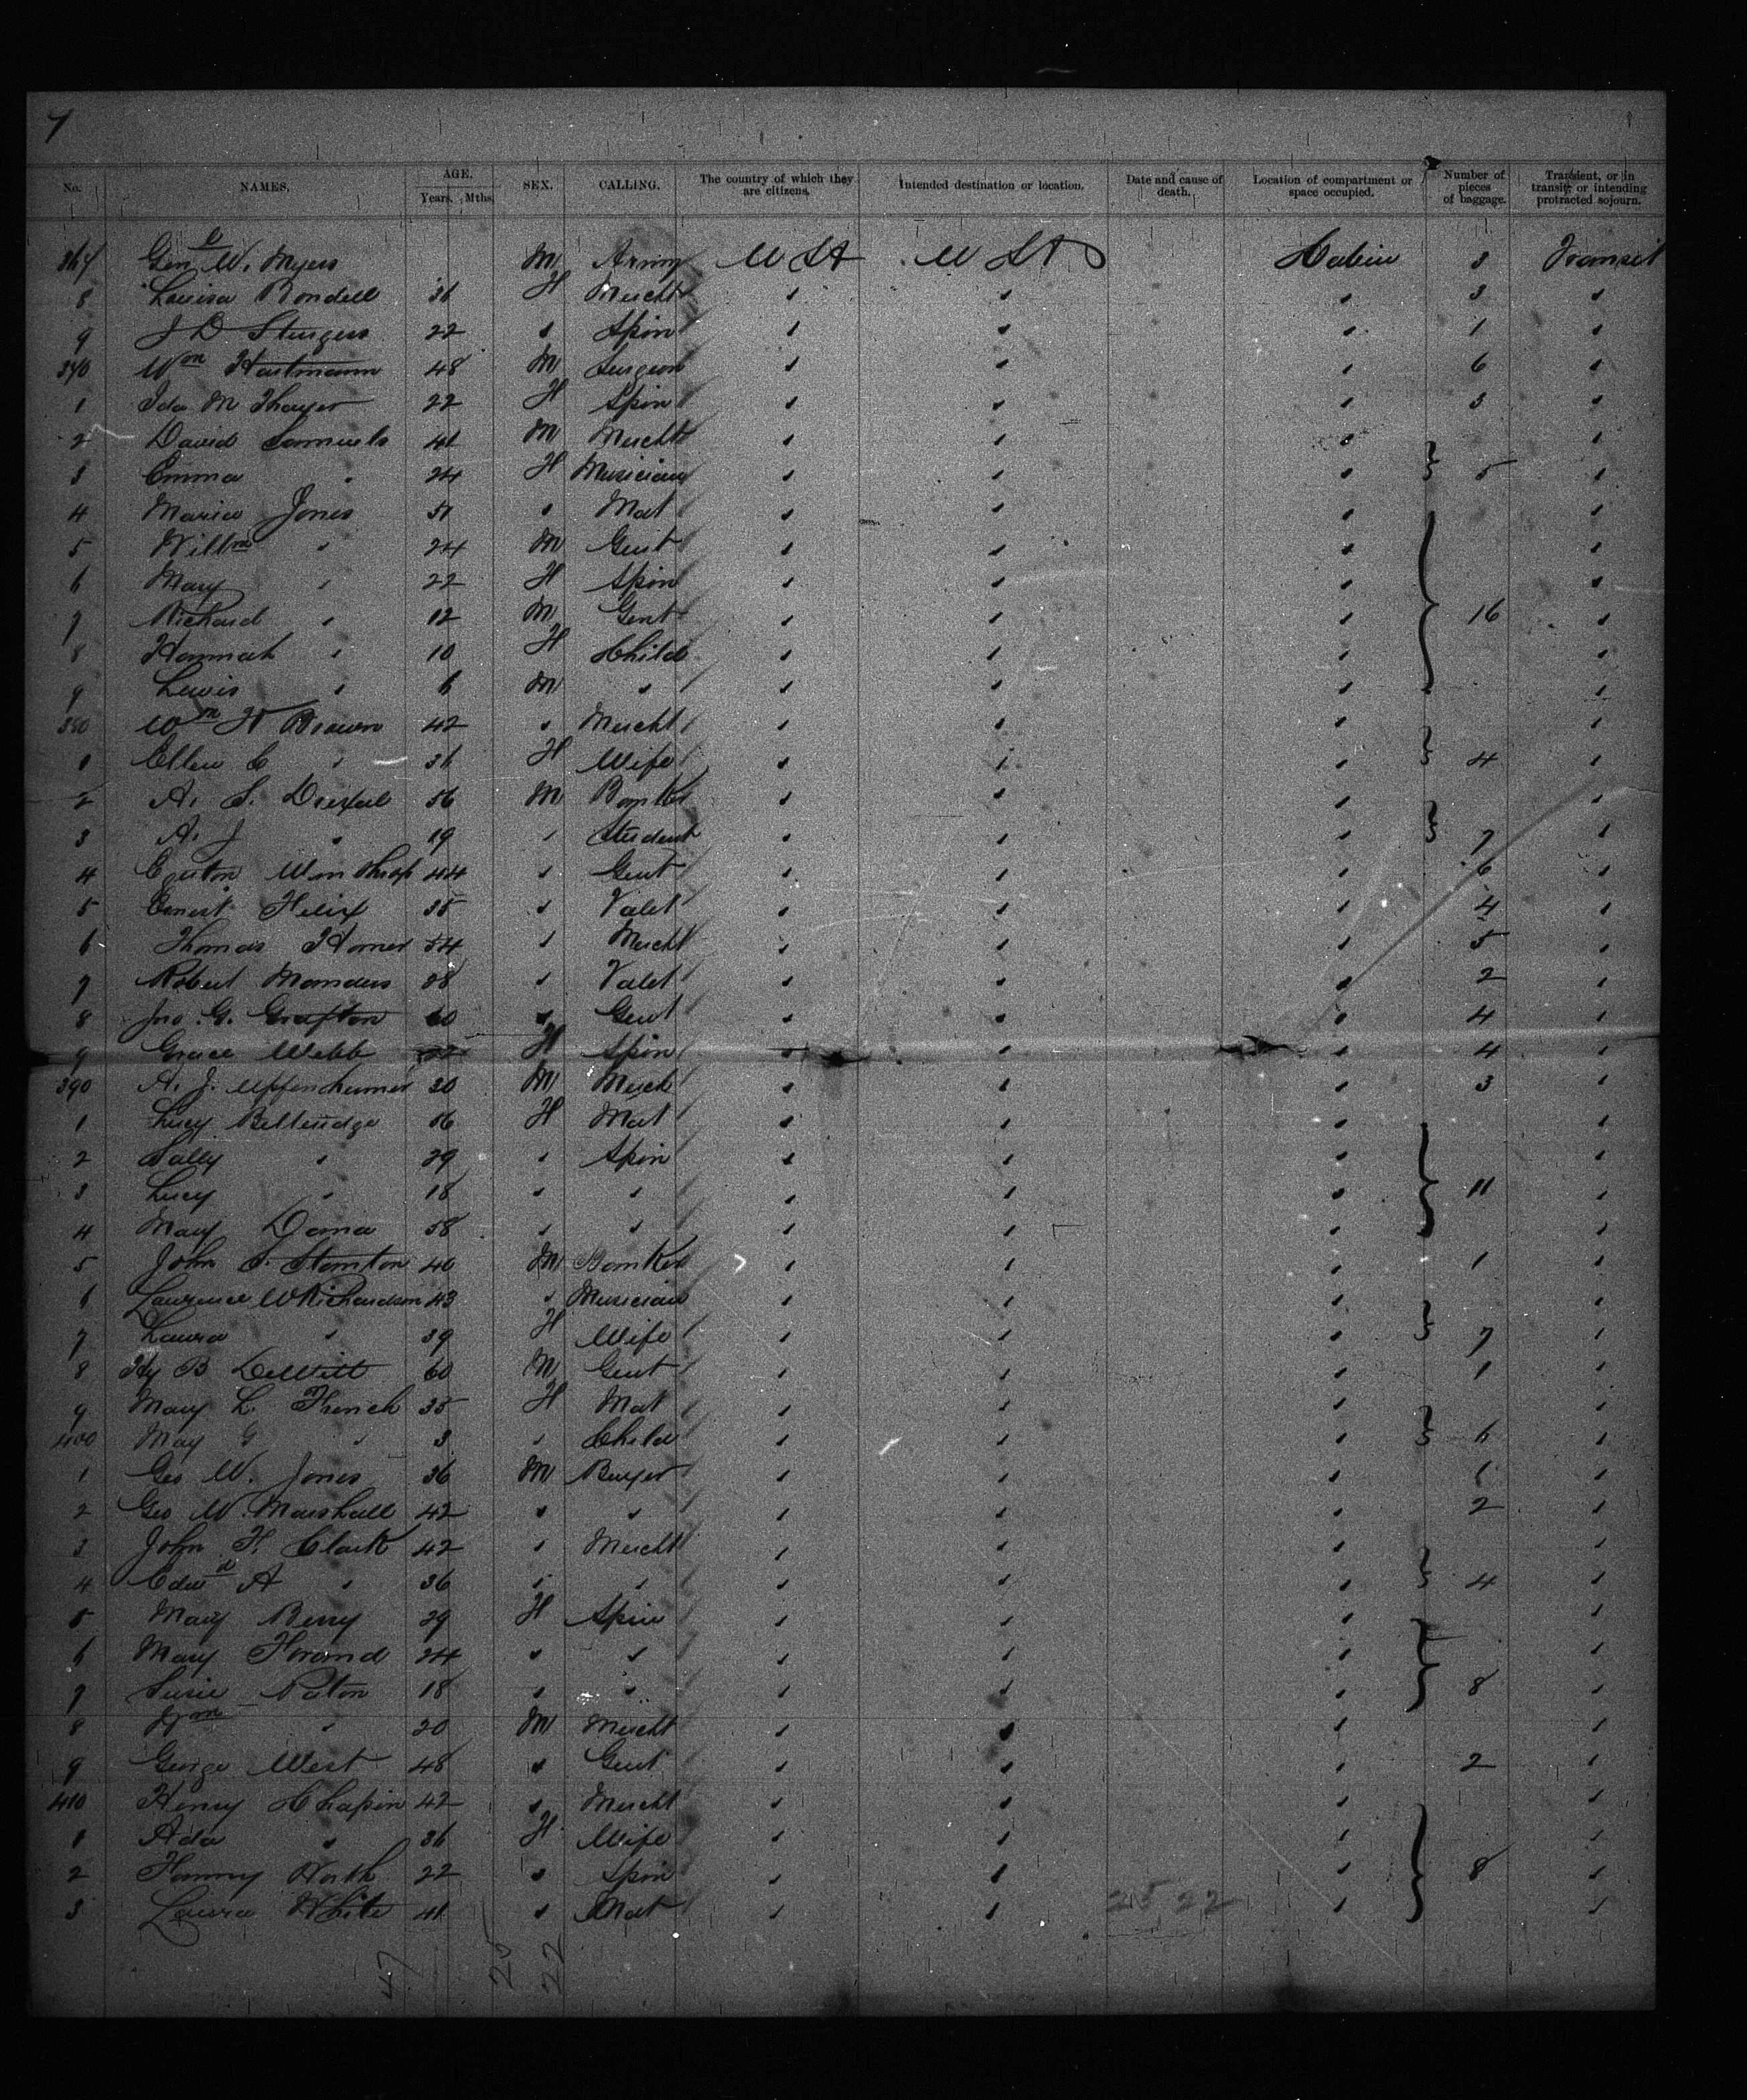 7
No. NAMES. AGE. Years. Mths. SEX. CALLING. The country of which they are citizens. Intended destination or location. Date and cause of death. Location of compartment or space occupied. Number of pieces of baggage. Transient, or in transit, or intending protracted sojourn.
Genl W. Myers M Army U St U St Cabin 3 Transit
8 Louisa Rondell 36 F Mercht " " " 3 "
9 J D Sturgess 22 " Spin " " " 1 "
370 Wm Hartmann 48 M Surgeon " " " 6 "
1 Ida M Thayer 22 F Spin " " " 3 "
2 David Samuels 41 M Mercht " " " "
3 Emma " 24 F Musician " " " 5 "
4 Maria Jones 51 " Mat " " " "
5 Willm " 24 M Gent " " " "
6 Mary " 22 F Spin " " " "
7 Richard " 12 M Gent " " " 16 "
8 Hannah " 10 F Child " " " "
9 Lewis " 6 M " " " " "
380 Wm H Brown 42 " Mercht " " " "
1 Ellen C " 36 F Wife " " " 4 "
2 A. S. Drexel 56 M Banker " " " "
3 A. J " 19 " Student " " " 7 "
4 Egerton Winthrop 44 " Gent " " " 6 "
5 Ernest Felix 35 " Valet " " " 4 "
6 Thomas Homer 54 " Mercht " " " 5 "
7 Robert Manders 38 " Valet " " " 2 "
8 Jno. G. Grafton 60 " Gent " " " 4 "
9 Grace Webb 22 F Spin " " " 4 "
390 A. J. Uffenheimer 30 M Merch " " " 3 "
1 Lucy Belleridge 56 F Mat " " " "
2 Sally " 29 " Spin " " " "
3 Lucy " 18 " " " " " 11 "
4 Mary Dana 58 " " " " " "
5 John S. Stanton 40 M Banker " " " 1 "
6 Laurence W Richardson 43 " Musician " " " "
7 Laura " 39 F Wife " " " 7 "
8 Hy B DeWitt 60 M Gent " " " 1 "
9 Mary L. French 35 F Mat " " " "
400 May G " 3 " Child " " " 6 "
1 Geo W. Jones 36 M Buyer " " " 1 "
2 Geo W. Marshall 42 " " " " " 2 "
3 John F. Clark 42 " Mercht " " " "
4 Edwd A " 36 " " " " " 4 "
5 Mary Berry 29 F Spin " " " "
6 Mary 24 " " " " " "
7 Susie Paton 18 " " " " " 8 "
8 Wm " 20 M Mercht " " " "
9 George West 48 " Gent " " " 2 "
410 Henry Chapin 42 " Mercht " " " "
1 Ada " 36 F Wife " " " "
2 Fanny North 22 " Spin " " " 8 "
3 Laura White 41 " Mat " " " "
25 22
47 25 22